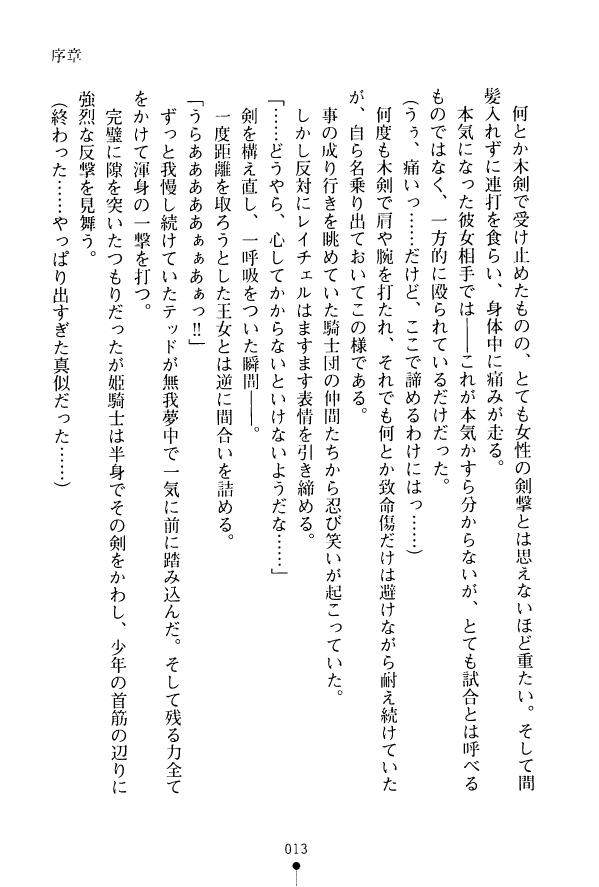 序章
何とか木剣で受け止めたものの、とても女性の剣撃とは思えないほど重たい。そして間
髪入れずに連打を食らい、身体中に痛みが走る。
本気になった彼女相手では――これが本気かすら分からないが、とても試合とは呼べる
ものではなく、一方的に殴られているだけだった。
(うぅ、痛いっ……だけど、ここで諦めるわけにはっ……)
何度も木剣で肩や腕を打たれ、それでも何とか致命傷だけは避けながら耐え続けていた
が、自ら名乗り出ておいてこの様である。
事の成り行きを眺めていた騎士団の仲間たちから忍び笑いが起こっていた。
しかし反対にレイチェルはますます表情を引き締める。
「……どうやら、心してかからないといけないようだな……」
剣を構え直し、一呼吸をついた瞬間――。
一度距離を取ろうとした王女とは逆に間合いを詰める。
「うらああああああぁぁあぁっ!!」
ずっと我慢し続けていたテッドが無我夢中で一気に前に踏み込んだ。そして残る力全て
をかけて渾身の一撃を打つ。
完璧に隙を突いたつもりだったが姫騎士は半身でその剣をかわし、少年の首筋の辺りに
強烈な反撃を見舞う。
(終わった……やっぱり出すぎた真似だった……)
013